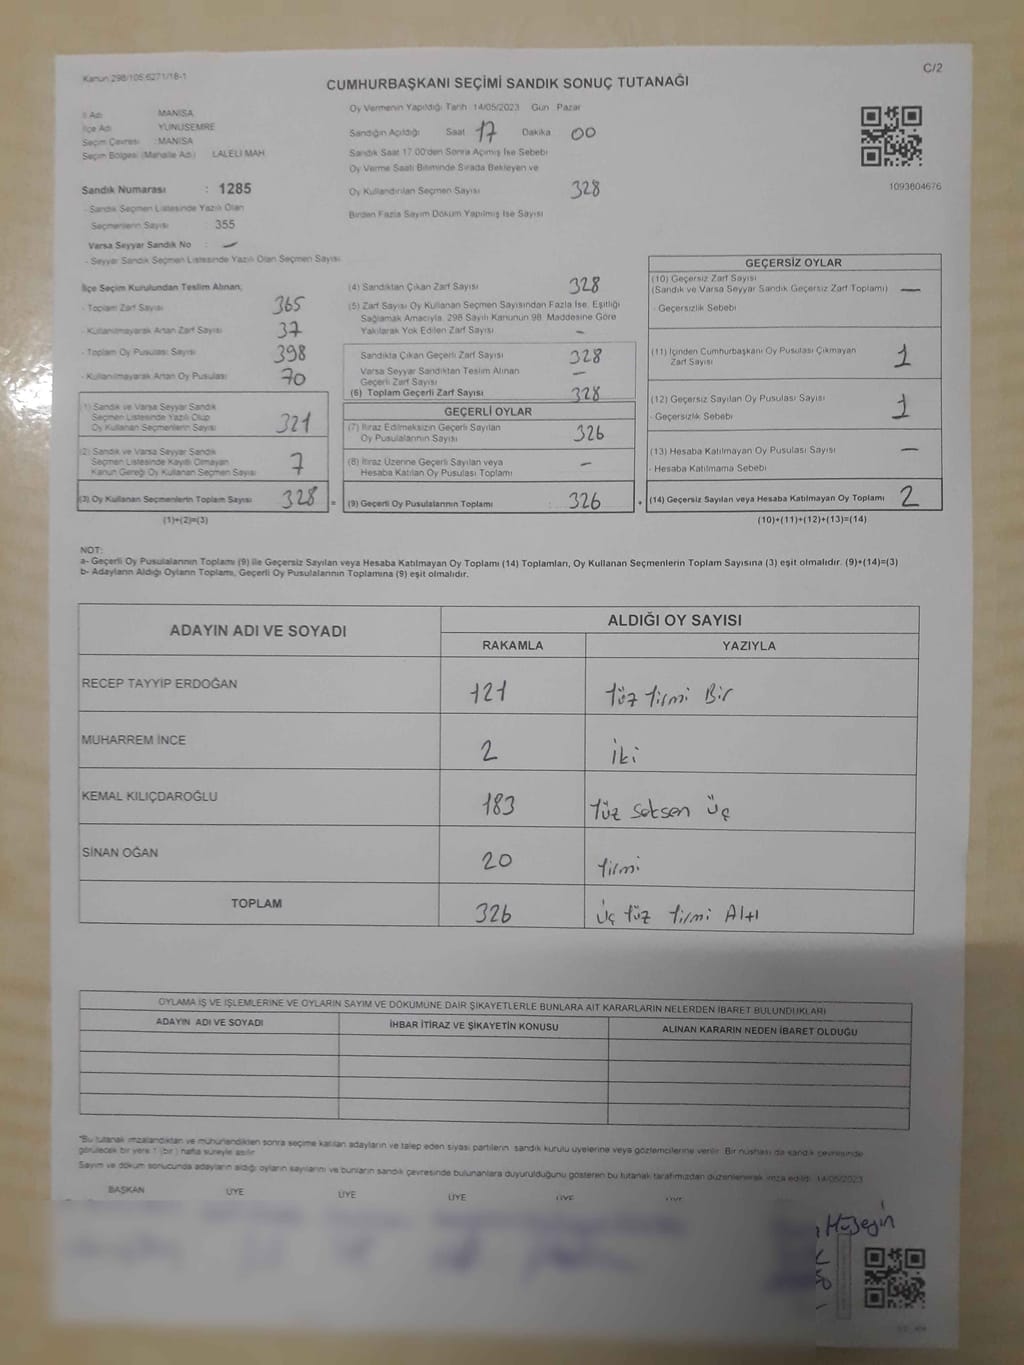 Kanun 298/105,6271/18-1
C/2
CUMHURBAŞKANI SEÇİMİ SANDIK SONUÇ TUTANAĞI
İl Adı : MANİSA
İlçe Adı : YUNUSEMRE
Seçim Çevresi : MANİSA
Seçim Bölgesi (Mahalle Adı) : LALELİ MAH.
Sandık Numarası : 1285
- Sandık Seçmen Listesinde Yazılı Olan
Seçmenlerin Sayısı : 355
Varsa Seyyar Sandık No : —
- Seyyar Sandık Seçmen Listesinde Yazılı Olan Seçmen Sayısı
Oy Vermenin Yapıldığı Tarih 14/05/2023 Gün Pazar
Sandığın Açıldığı Saat 17 Dakika 00
Sandık Saat 17.00'den Sonra Açılmış İse Sebebi
Oy Verme Saati Bitiminde Sırada Bekleyen ve
Oy Kullandırılan Seçmen Sayısı 328
Birden Fazla Sayım Döküm Yapılmış İse Sayısı
1093804676
İlçe Seçim Kurulundan Teslim Alınan;
- Toplam Zarf Sayısı 365
- Kullanılmayarak Artan Zarf Sayısı 37
- Toplam Oy Pusulası Sayısı 398
- Kullanılmayarak Artan Oy Pusulası 70
(1) Sandık ve Varsa Seyyar Sandık
Seçmen Listesinde Yazılı Olup
Oy Kullanan Seçmenlerin Sayısı 321
(2) Sandık ve Varsa Seyyar Sandık
Seçmen Listesinde Kayıtlı Olmayan
Kanun Gereği Oy Kullanan Seçmen Sayısı 7
(3) Oy Kullanan Seçmenlerin Toplam Sayısı 328 =
(1)+(2)=(3)
(4) Sandıktan Çıkan Zarf Sayısı 328
(5) Zarf Sayısı Oy Kullanan Seçmen Sayısından Fazla İse, Eşitliği
Sağlamak Amacıyla, 298 Sayılı Kanunun 98. Maddesine Göre
Yakılarak Yok Edilen Zarf Sayısı —
Sandıkta Çıkan Geçerli Zarf Sayısı 328
Varsa Seyyar Sandıktan Teslim Alınan
Geçerli Zarf Sayısı —
(6) Toplam Geçerli Zarf Sayısı 328
GEÇERLİ OYLAR
(7) İtiraz Edilmeksizin Geçerli Sayılan
Oy Pusulalarının Sayısı 326
(8) İtiraz Üzerine Geçerli Sayılan veya
Hesaba Katılan Oy Pusulası Toplamı —
(9) Geçerli Oy Pusulalarının Toplamı : 326 +
GEÇERSİZ OYLAR
(10) Geçersiz Zarf Sayısı
(Sandık ve Varsa Seyyar Sandık Geçersiz Zarf Toplamı) —
- Geçersizlik Sebebi
(11) İçinden Cumhurbaşkanı Oy Pusulası Çıkmayan
Zarf Sayısı 1
(12) Geçersiz Sayılan Oy Pusulası Sayısı 1
- Geçersizlik Sebebi
(13) Hesaba Katılmayan Oy Pusulası Sayısı —
- Hesaba Katılmama Sebebi
(14) Geçersiz Sayılan veya Hesaba Katılmayan Oy Toplamı 2
(10)+(11)+(12)+(13)=(14)
NOT:
a- Geçerli Oy Pusulalarının Toplamı (9) ile Geçersiz Sayılan veya Hesaba Katılmayan Oy Toplamı (14) Toplamları, Oy Kullanan Seçmenlerin Toplam Sayısına (3) eşit olmalıdır. (9)+(14)=(3)
b- Adayların Aldığı Oyların Toplamı, Geçerli Oy Pusulalarının Toplamına (9) eşit olmalıdır.
ADAYIN ADI VE SOYADI
ALDIĞI OY SAYISI
RAKAMLA YAZIYLA
RECEP TAYYİP ERDOĞAN 121 Yüz Yirmi Bir
MUHARREM İNCE 2 İki
KEMAL KILIÇDAROĞLU 183 Yüz Seksen Üç
SİNAN OĞAN 20 Yirmi
TOPLAM 326 Üç Yüz Yirmi Altı
OYLAMA İŞ VE İŞLEMLERİNE VE OYLARIN SAYIM VE DÖKÜMÜNE DAİR ŞİKAYETLERLE BUNLARA AİT KARARLARIN NELERDEN İBARET BULUNDUKLARI
ADAYIN ADI VE SOYADI İHBAR İTİRAZ VE ŞİKAYETİN KONUSU ALINAN KARARIN NEDEN İBARET OLDUĞU
*Bu tutanak imzalandıktan ve mühürlendikten sonra seçime katılan adayların ve talep eden siyasi partilerin sandık kurulu üyelerine veya gözlemcilerine verilir. Bir nüshası da sandık çevresinde
görülecek bir yere 1 (bir) hafta süreyle asılır.
Sayım ve döküm sonucunda adayların aldığı oyların sayılarını ve bunların sandık çevresinde bulunanlara duyurulduğunu gösteren bu tutanak tarafımızdan düzenlenerek imza edildi. 14/05/2023
BAŞKAN ÜYE ÜYE ÜYE ÜYE ÜYE
Hüseyin